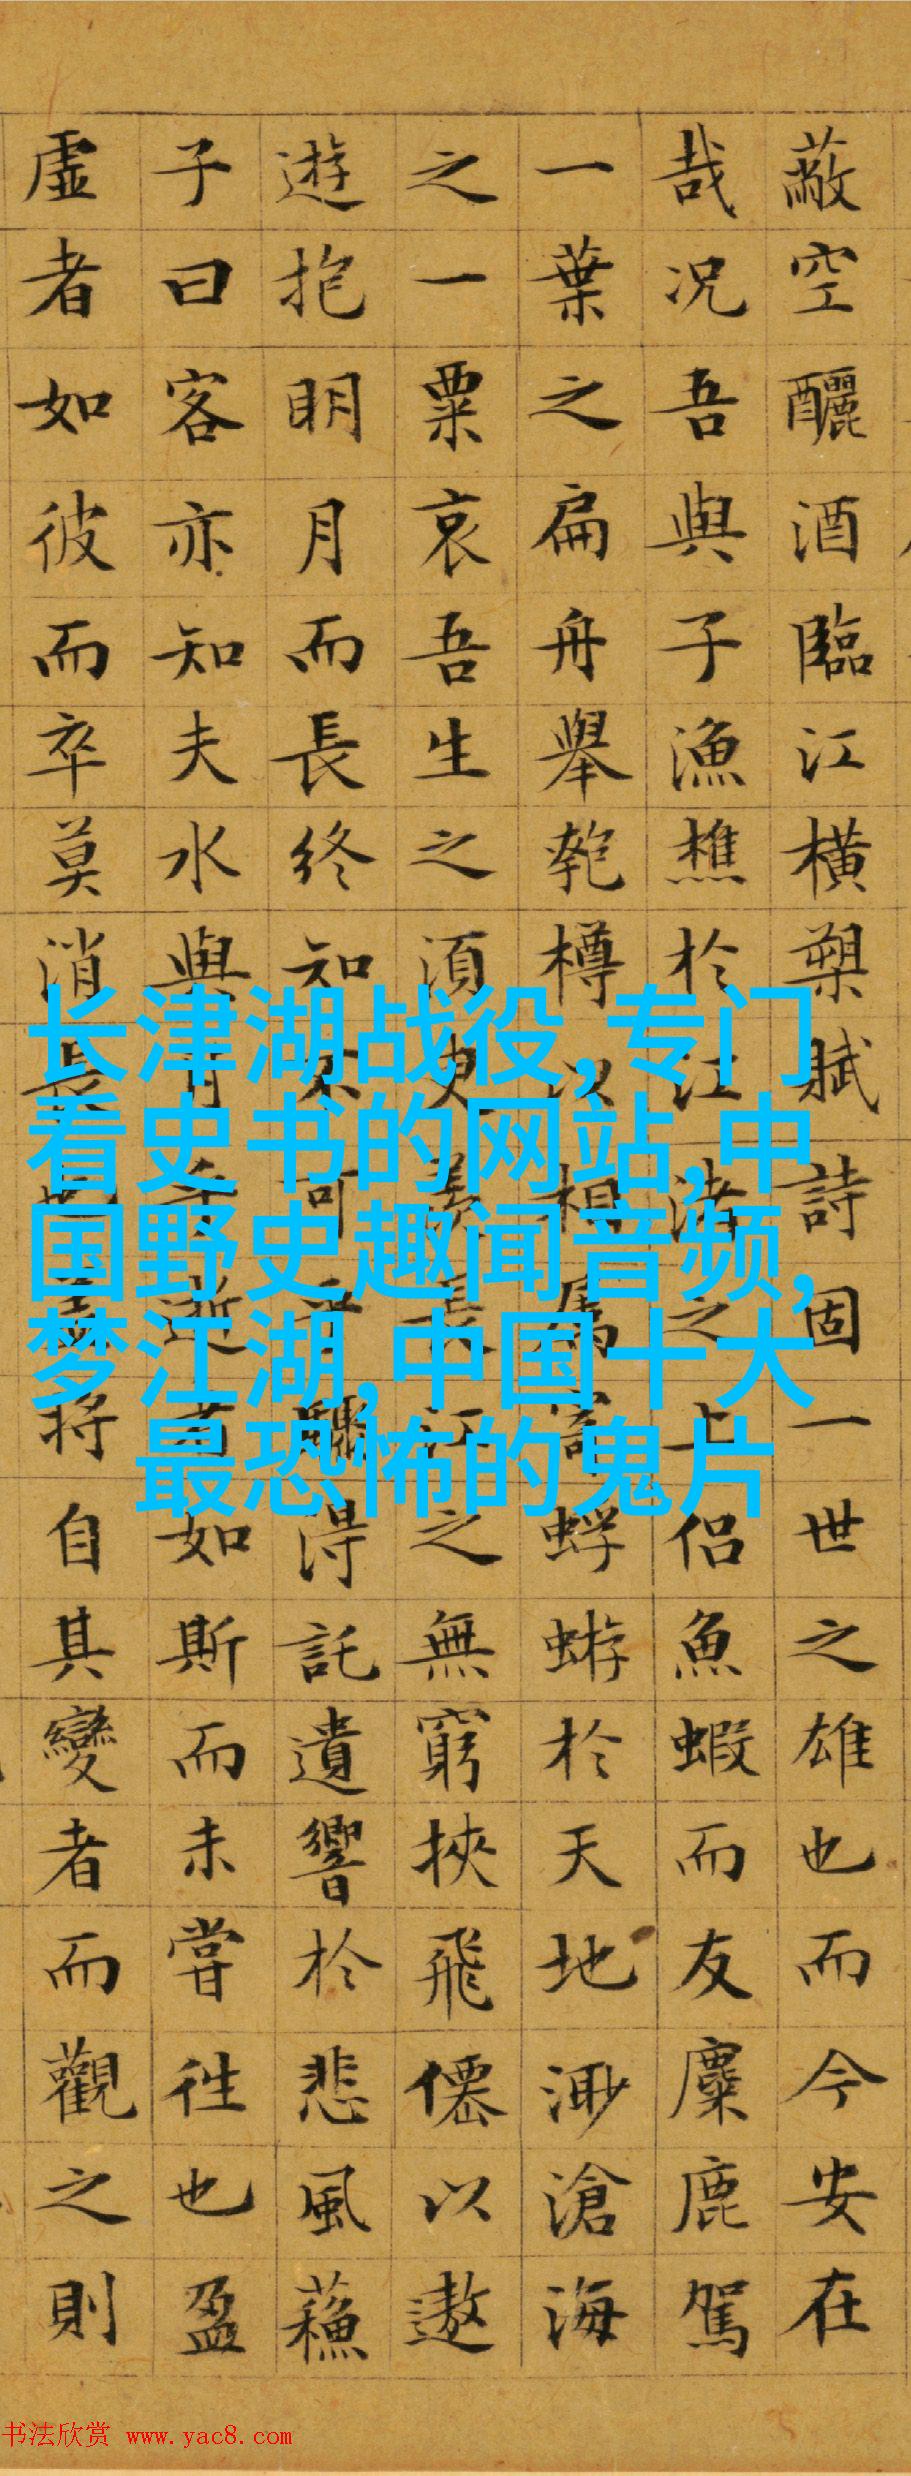 蔽空釃酒臨江橫槊賦詩固一世之雄也而今安在
哉况吾與子漁樵於江渚之上侶魚蝦而友麋鹿駕
一葉之扁舟舉匏樽以相屬寄蜉蝣於天地渺滄海
之一粟哀吾生之湏臾羨長江之無窮挾飛僊以遨
遊抱明月而長終知不可乎驟得託遺響於悲風蘓
子曰客亦知夫水與月乎逝者如斯而未嘗往也盈
虛者如彼而卒莫消長也蓋將自其變者而觀之則
长津湖战役,专门
看史书的网站,中
国野史趣闻音频,
梦江湖,中国十大
最恐怖的鬼片
书法欣赏 www.yac8.com